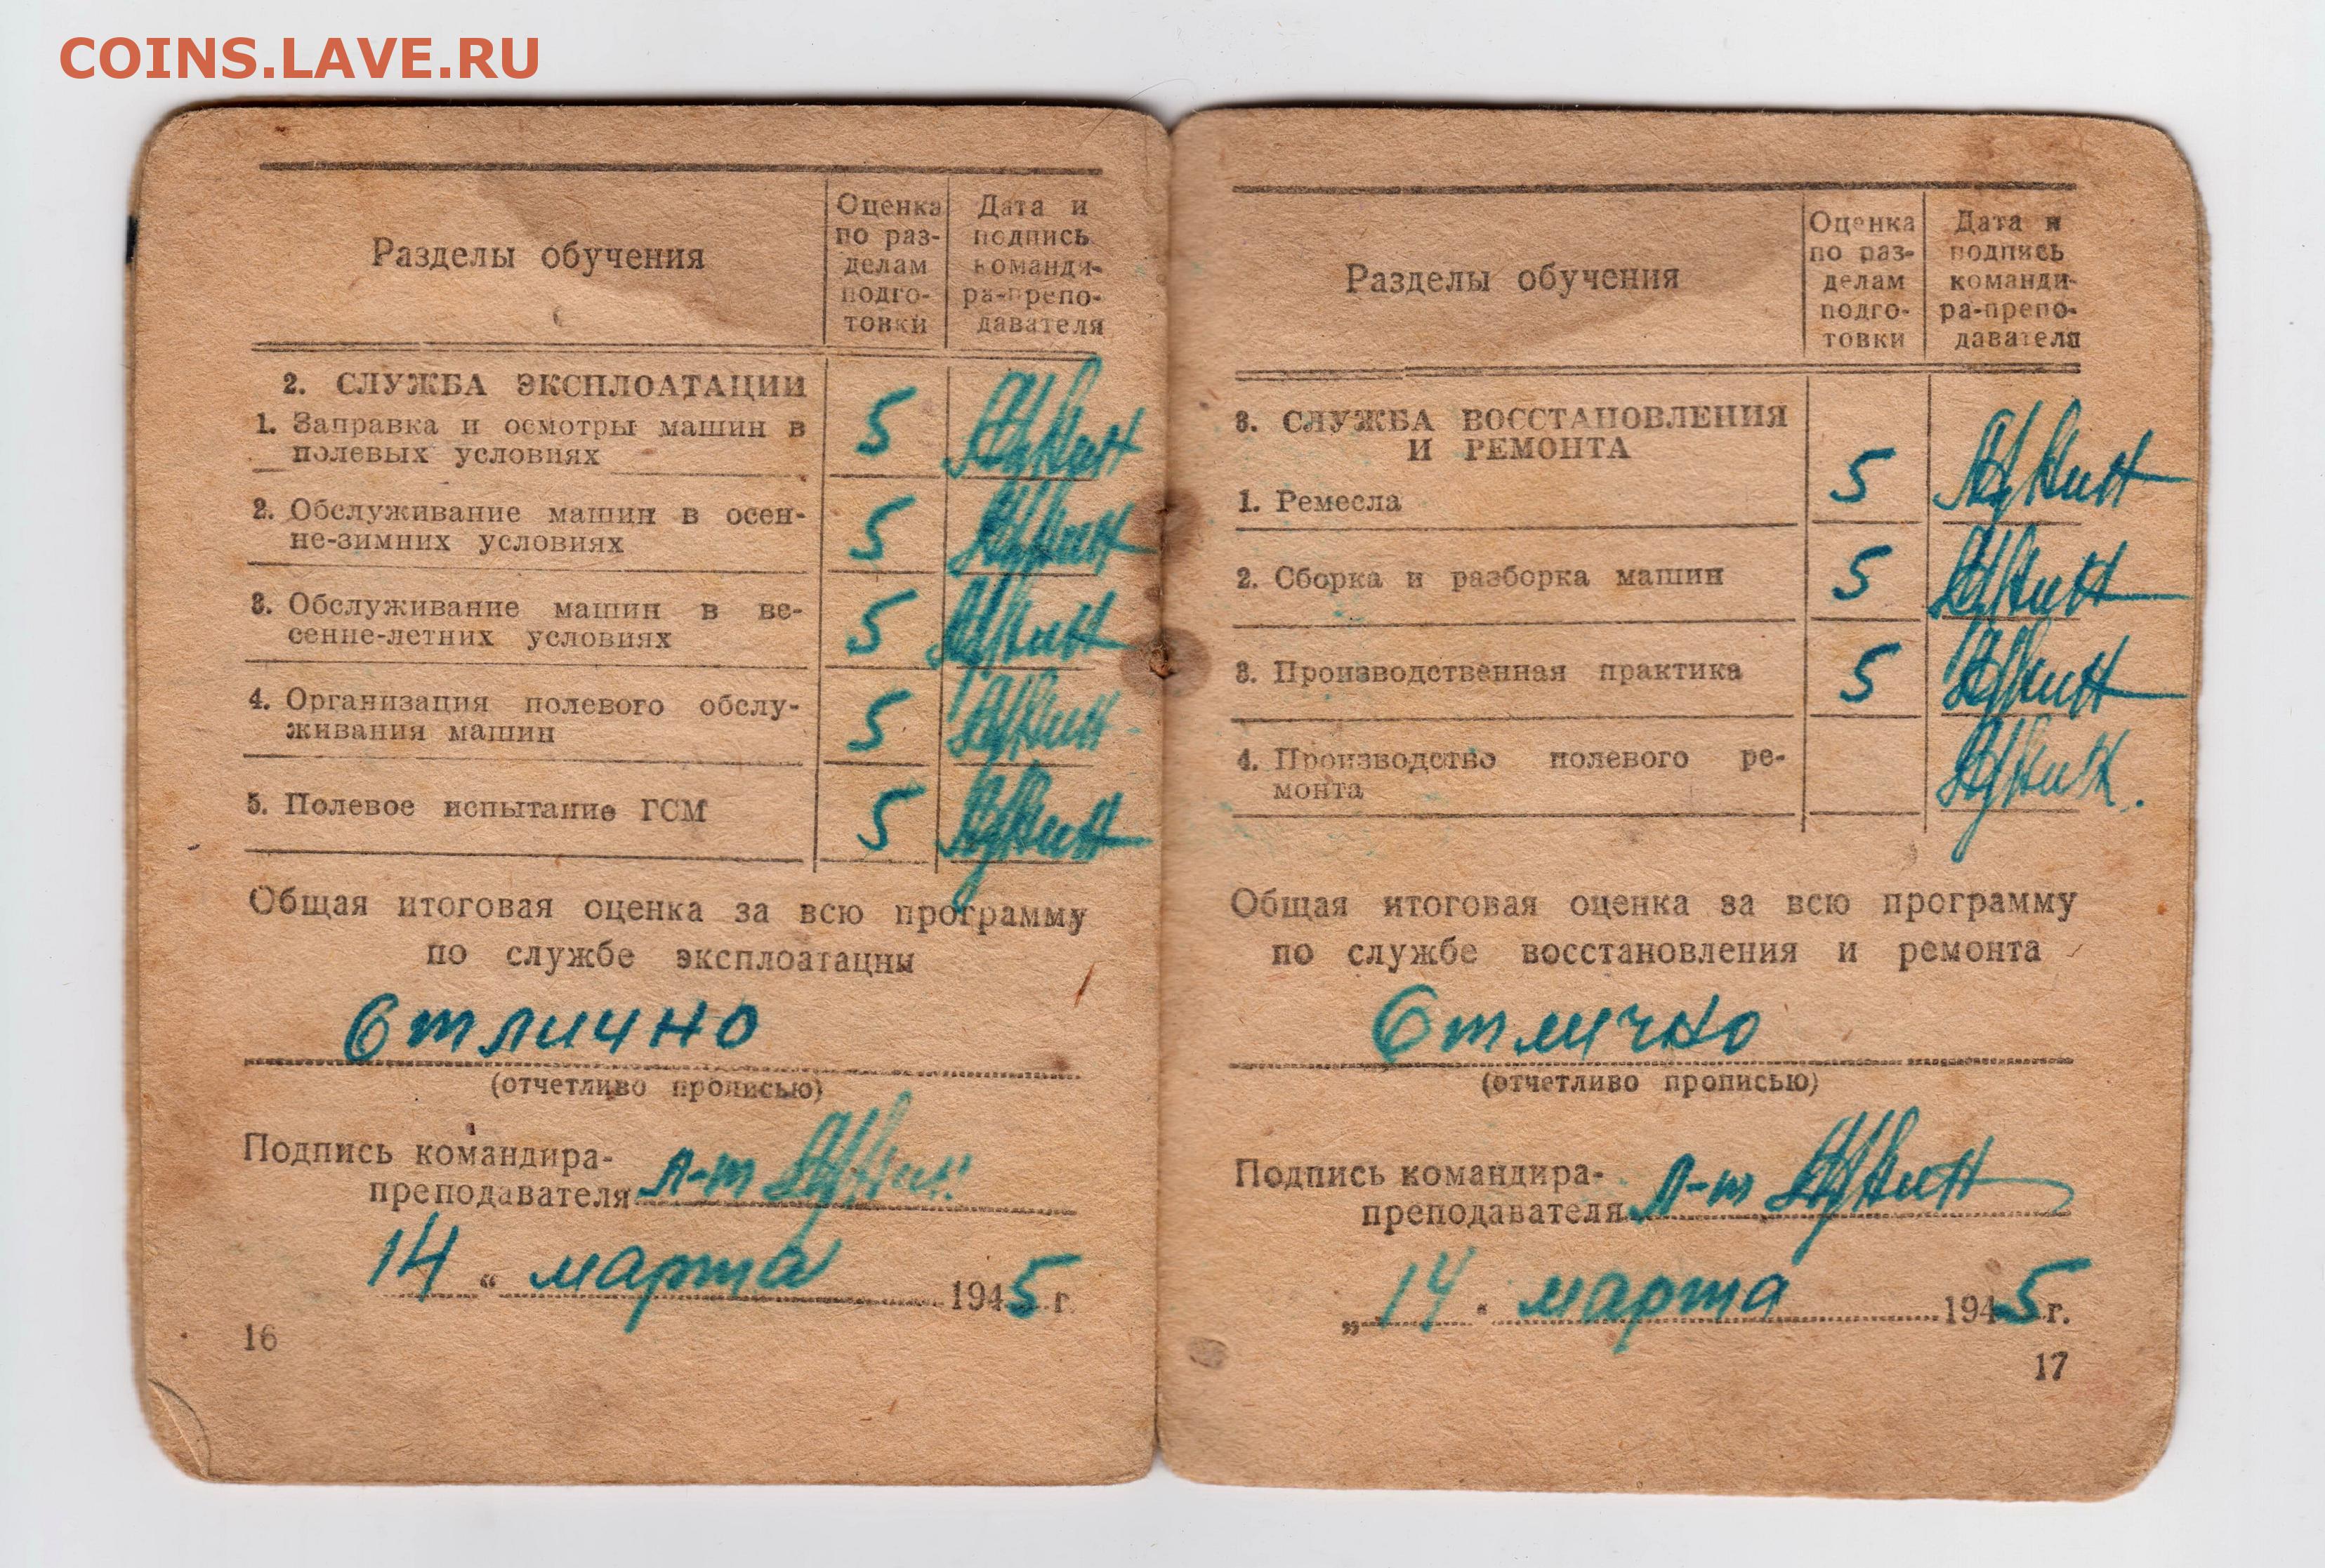 COINS.LAVE.RU
Разделы обучения
Оценка по раз-
делам
подго-
товки
Дата и
подпись
команди-
ра-препо-
давателя
2. СЛУЖБА ЭКСПЛОАТАЦИИ
1. Заправка и осмотры машин в
полевых условиях
5
2. Обслуживание машин в осен-
не-зимних условиях
5
3. Обслуживание машин в ве-
сенне-летних условиях
5
4. Организация полевого обслу-
живания машин
5
5. Полевое испытание ГСМ
5
Общая итоговая оценка за всю программу
по службе эксплоатации
Отлично
(отчетливо прописью)
Подпись командира-
преподавателя л-т
14 " марта 1945 г.
16
Разделы обучения
Оценка
по раз-
делам
подго-
товки
Дата и
подпись
команди-
ра-препо-
давателя
3. СЛУЖБА ВОССТАНОВЛЕНИЯ
И РЕМОНТА
1. Ремесла 5
2. Сборка и разборка машин 5
3. Производственная практика 5
4. Производство полевого ре-
монта
Общая итоговая оценка за всю программу
по службе восстановления и ремонта
Отлично
(отчетливо прописью)
Подпись командира-
преподавателя л-т
„ 14 " марта 1945 г.
17